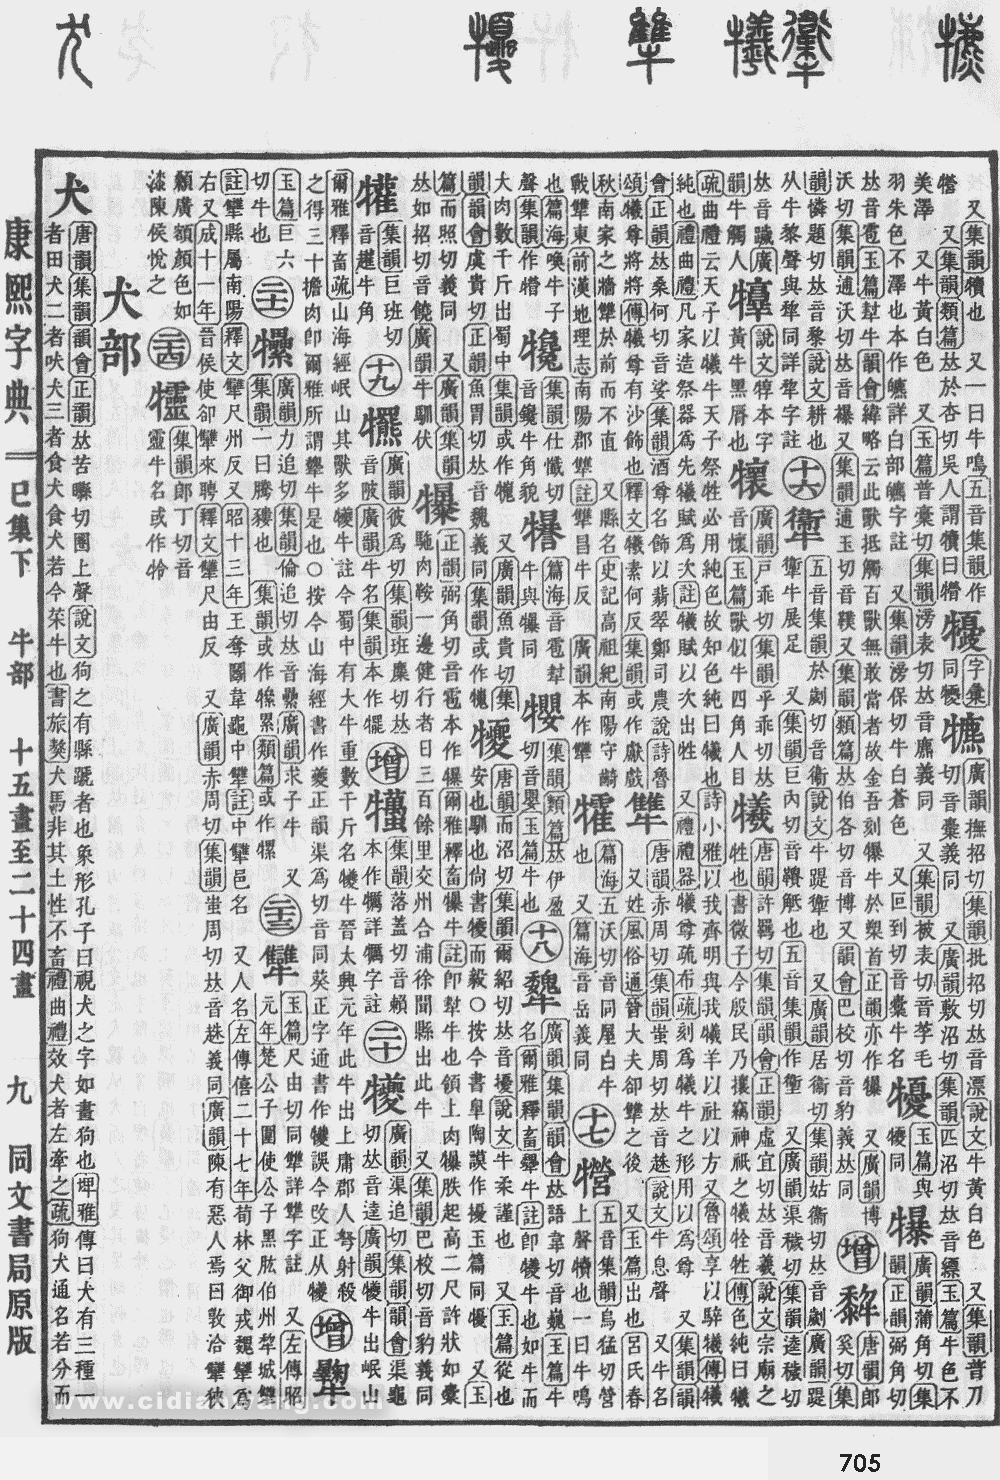 又集韻犢也 又一曰牛鳴五音集韻作
又集韻類篇𠀤於杏切吳人謂犢曰
字彙同犪
廣韻撫招切集韻批招切𠀤音漂說文牛黃白色 又集韻普刀
切音橐義同 又廣韻敷沼切集韻匹沼切𠀤音縹玉篇牛色不
美澤 又牛黃白色 又玉篇普表切集韻滂表切𠀤音麃義同 又集韻被表切音莩毛
羽朱色不澤也本作皫詳白部皫字註 又集韻滂保切牛白蒼色 又叵到切音橐牛名
玉篇與犪同
犦
廣韻蒲角切集韻正韻弼角切
𠀤音雹玉篇犎牛韻會緯略云此獸抵觸百獸無敢當者故金吾刻犦牛於槊首正韻亦作犦 又廣韻博
沃切集韻逋沃切𠀤音襮 又集韻逋玉切音轐 又集韻類篇𠀤伯各切音博 又韻會巴校切音豹義𠀤同
增
唐韻郎奚切集
韻憐題切𠀤音黎說文耕也
从牛黎聲與犂同詳犂字註
十六
五音集韻於劌切音衛說文牛踶
牛展足 又集韻巨內切音鞼觓也五音集韻作
又廣韻居衞切集韻姑衞切𠀤音劌廣韻踶
又廣韻渠穢切集韻逵穢切
𠀤音㘎廣韻牛觸人
說文㹁本字黃牛黑脣也
廣韻戶乖切集韻乎乖切𠀤
音懷玉篇獸似牛四角人目
犧
唐韻許羈切集韻韻會正韻虛宜切𠀤音羲說文宗廟之
牲也書微子今殷民乃攘竊神祇之犧牷牲傳色純曰犧
疏曲禮云天子以犧牛天子祭牲必用純色故知色純曰犧也詩小雅以我齊明與我犧羊以社以方 又魯頌享以騂犧傳犧
純也禮曲禮凡家造祭器爲先犧賦爲次註犧賦以次出牲 又禮禮器犧尊疏布疏刻爲犧牛之形用以爲尊 又集韻韻
會正韻𠀤桑何切音娑集韻酒尊名飾以翡翠鄭司農說詩魯
頌犧尊將將傳犧尊有沙飾也釋文犧素何反集韻或作獻戲
犨
唐韻赤周切集韻蚩周切𠀤音𨒬說文牛息聲 又牛名
又姓風俗通晉大夫郤犨之後 又玉篇出也呂氏春
秋南家之牆犨於前而不直 又縣名史記高祖紀南陽守齮
戰犨東前漢地理志南陽郡犨註犨昌牛反 廣韻本作犫
篇海五沃切音同屋白牛
也 又篇海音岳義同
十七
五音集韻烏猛切
上聲犢也一曰牛鳴
也篇海喚牛子
聲集韻作㹎
集韻仕懺切
音鑱牛角貌
篇海音雹犎
牛與犦同
集韻類篇𠀤伊盈
切音嬰玉篇牛也
十八
犩
廣韻集韻韻會𠀤語韋切音巍玉篇牛
名爾雅釋畜犩牛註卽犪牛也如牛而
大肉數千斤出蜀中集韻或作犪 又廣韻魚貴切集
韻韻會虞貴切正韻魚胃切𠀤音魏義同集韻或作犪
犪
唐韻而沼切集韻爾紹切𠀤音擾說文牛柔謹也 又玉篇從也
安也馴也尙書犪而毅○按今書臯陶謨作擾玉篇同犪 又玉
篇而照切義同 又廣韻集韻
𠀤如招切音饒廣韻牛馴伏
犦
正韻弼角切音雹本作犦爾雅釋畜犦牛註卽犎牛也領上肉犦胅起高二尺許狀如橐
駝肉鞍一邊健行者日三百餘里交州合浦徐聞縣出此牛 又集韻巴校切音豹義同
集韻巨班切
音趯牛角
十九
廣韻彼爲切集韻班麋切𠀤
音陂廣韻牛名集韻本作犤
增
集韻落蓋切音賴
本作犡詳犡字註
二十
犪
廣韻渠追切集韻韻會渠龜
切𠀤音逵廣韻犪牛出岷山
爾雅釋畜疏山海經岷山其獸多犪牛註今蜀中有大牛重數千斤名犪牛晉太興元年此牛出上庸郡人弩射殺
之得三十擔肉卽爾雅所謂犩牛是也○按今山海經書作夔正韻渠爲切音同葵正字通書作犪誤今改正从犪
增
玉篇巨六
切牛也
二十一
廣韻力追切集韻倫追切𠀤音纍廣韻求子牛 又
集韻一曰騰㺤也 集韻或作㹎累類篇或作㹎
二十三
犫
玉篇尺由切同犨詳犨字註 又左傳昭
元年楚公子圍使公子黑肱伯州犂城犫
註犫縣屬南陽釋文犫尺州反 又昭十三年王奪鬭韋龜中犫註中犫邑名 又人名左傳僖二十七年荀林父御戎魏犫爲
右 又成十一年晉侯使卻犫來聘釋文犫尺由反 又廣韻赤周切集韻蚩周切𠀤音𨒬義同廣韻陳有惡人焉曰敦洽犫狄
顙廣額顏色如
漆陳侯悅之
二十四
集韻郞丁切音
靈牛名或作㸳
犬部
犬
唐韻集韻韻會正韻𠀤苦𤟤切圈上聲說文狗之有縣蹏者也象形孔子曰視犬之字如畫狗也埤雅傳曰犬有三種一
者田犬二者吠犬三者食犬食犬若今菜牛也書旅獒犬馬非其土性不畜禮曲禮效犬者左牽之疏狗犬通名若分而
康熙字典 巳集下 牛部 十五畫至二十四畫 九 同文書局原版
www.cidianwang.com
705